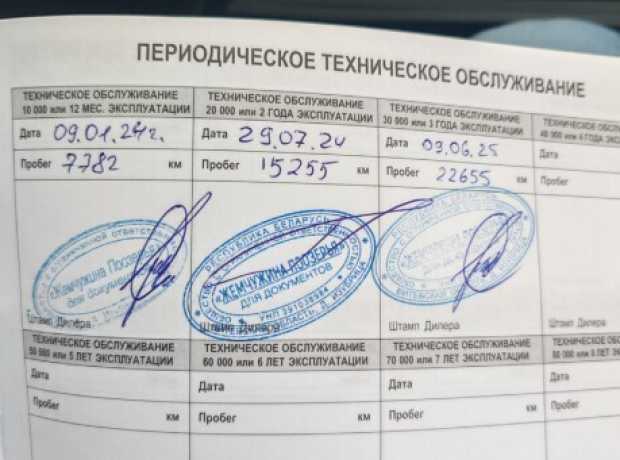 ПЕРИОДИЧЕСКОЕ ТЕХНИЧЕСКОЕ ОБСЛУЖИВАНИЕ
ТЕХНИЧЕСКОЕ ОБСЛУЖИВАНИЕ
10 000 или 12 МЕС. ЭКСПЛУАТАЦИИ
Дата 09.01.24г.
Пробег 7782 км
«Жемчужина Поозерья»
для документов
Штамп Дилера
ТЕХНИЧЕСКОЕ ОБСЛУЖИВАНИЕ
20 000 или 2 ГОДА ЭКСПЛУАТАЦИИ
Дата 29.07.24
Пробег 15255 км
РЕСПУБЛИКА БЕЛАРУСЬ
«ЖЕМЧУЖИНА ПООЗЕРЬЯ»
ДЛЯ ДОКУМЕНТОВ
УНП
Штамп Дилера
ТЕХНИЧЕСКОЕ ОБСЛУЖИВАНИЕ
30 000 или 3 ГОДА ЭКСПЛУАТАЦИИ
Дата 03.06.25
Пробег 22655 км
Штамп Дилера
ТЕХНИЧЕСКОЕ ОБСЛ
40 000 или 4 ГОДА ЭКС
Дата
Пробег
Штамп Дилера
ТЕХНИЧЕСКОЕ ОБСЛУЖИВАНИЕ
50 000 или 5 ЛЕТ ЭКСПЛУАТАЦИИ
Дата
Пробег км
ТЕХНИЧЕСКОЕ ОБСЛУЖИВАНИЕ
60 000 или 6 ЛЕТ ЭКСПЛУАТАЦИИ
Дата
Пробег км
ТЕХНИЧЕСКОЕ ОБСЛУЖИВАНИЕ
70 000 или 7 ЛЕТ ЭКСПЛУАТАЦИИ
Дата
Пробег км
ТЕХНИЧЕСКОЕ ОБС
80 000 или 8 ЛЕТ ЭКС
Дата
Пробег